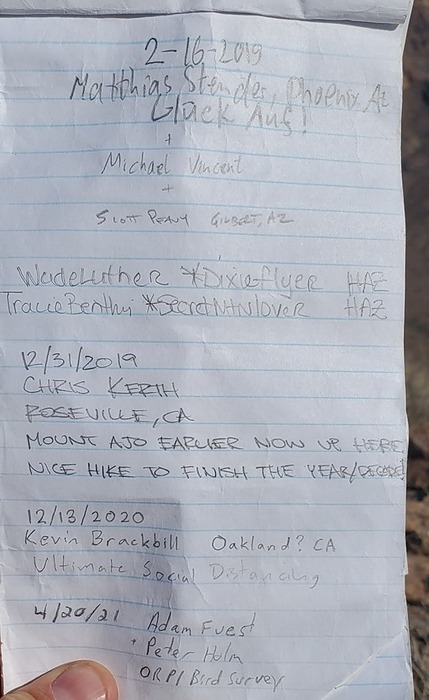 2-16-2019
Matthias Stender, Phoenix Az
Glück Auf!
+
Michael Vincent
+
Scott Peavy Gilbert, AZ
WadeLuther *Dixieflyer HAZ
Tracie *SecretMtnlover HAZ
12/31/2019
CHRIS KERTH
ROSEVILLE, CA
MOUNT AJO EARLIER NOW UP HERE
NICE HIKE TO FINISH THE YEAR/DECADE!
12/13/2020
Kevin Brackbill Oakland? CA
Ultimate Social Distancing
4/20/21 Adam Fuest
+ Peter Holm
ORPI Bird Survey